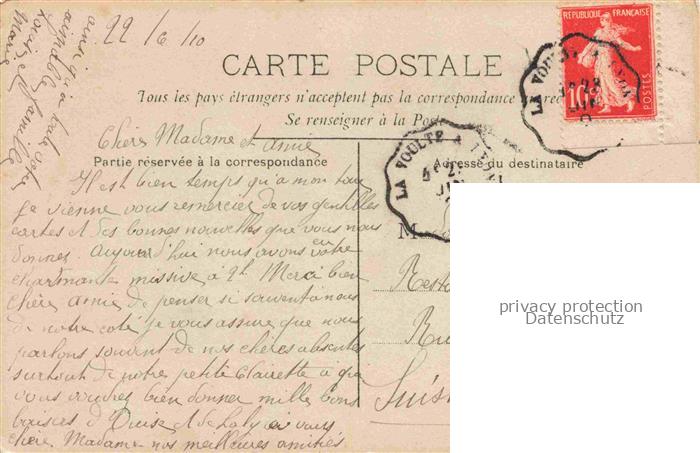 22/6/10
ainsi qu'à toute votre
aimable famille
Louise
Marie
RÉPUBLIQUE FRANÇAISE
10
POSTES
CARTE POSTALE
Tous les pays étrangers n'acceptent pas la correspondance au rec
Se renseigner à la Poste
LA VOULTE A
LA VOULTE A
Chère Madame et Amie
Partie réservée à la correspondance
Adresse du destinataire
Il est bien temps qu'à mon tour
je vienne vous remercier de vos gentilles
cartes et des bonnes nouvelles que vous nous
donnez. Aujourd'hui nous avons eu votre
charmante missive à 2h. Merci bien
chère amie de penser si souvent à nous
de notre coté je vous assure que nous
parlons souvent de nos chères absentes
surtout de notre petite Clairette à qui
vous voudrez bien donner mille bons
baisers d' et de Laly et vous
chère Madame nos meilleures amitiés
M
Resta
Ru
Suis
privacy protection
Datenschutz